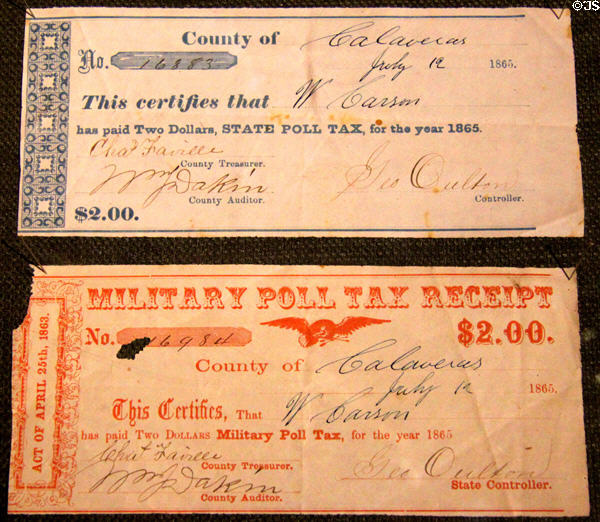 © JS
County of Calaveras
No. 16883 July 12 1865.
This certifies that W Carson
has paid Two Dollars, STATE POLL TAX, for the year 1865.
Chas Faville
County Treasurer.
Wm J Dakin Geo Oulton
County Auditor. Controller.
$2.00.
ACT OF APRIL 25th, 1863.
MILITARY POLL TAX RECEIPT
No. 16984 $2.00.
County of Calaveras
July 12 1865.
This Certifies, That W Carson
has paid Two Dollars Military Poll Tax, for the year 1865
Chas Faville
County Treasurer.
Wm J Dakin Geo Oulton
County Auditor. State Controller.